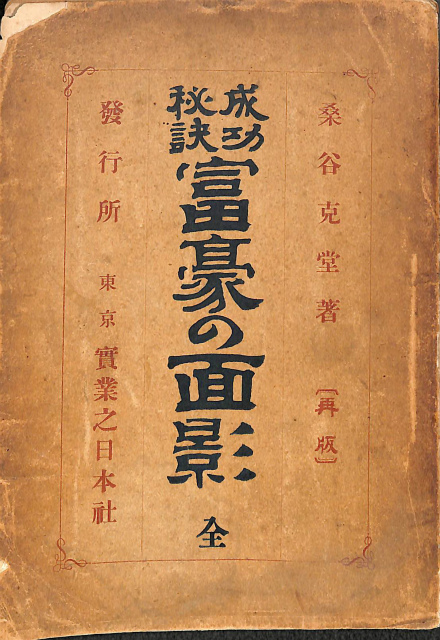 桑谷克堂著 〔再版〕
成功
秘訣
富豪の面影 全
發行所 東京 實業之日本社